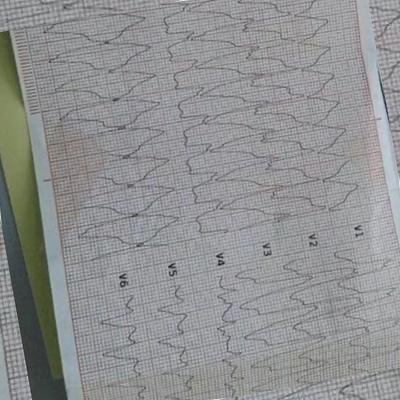 V1
V2
V3
V4
V5
V6